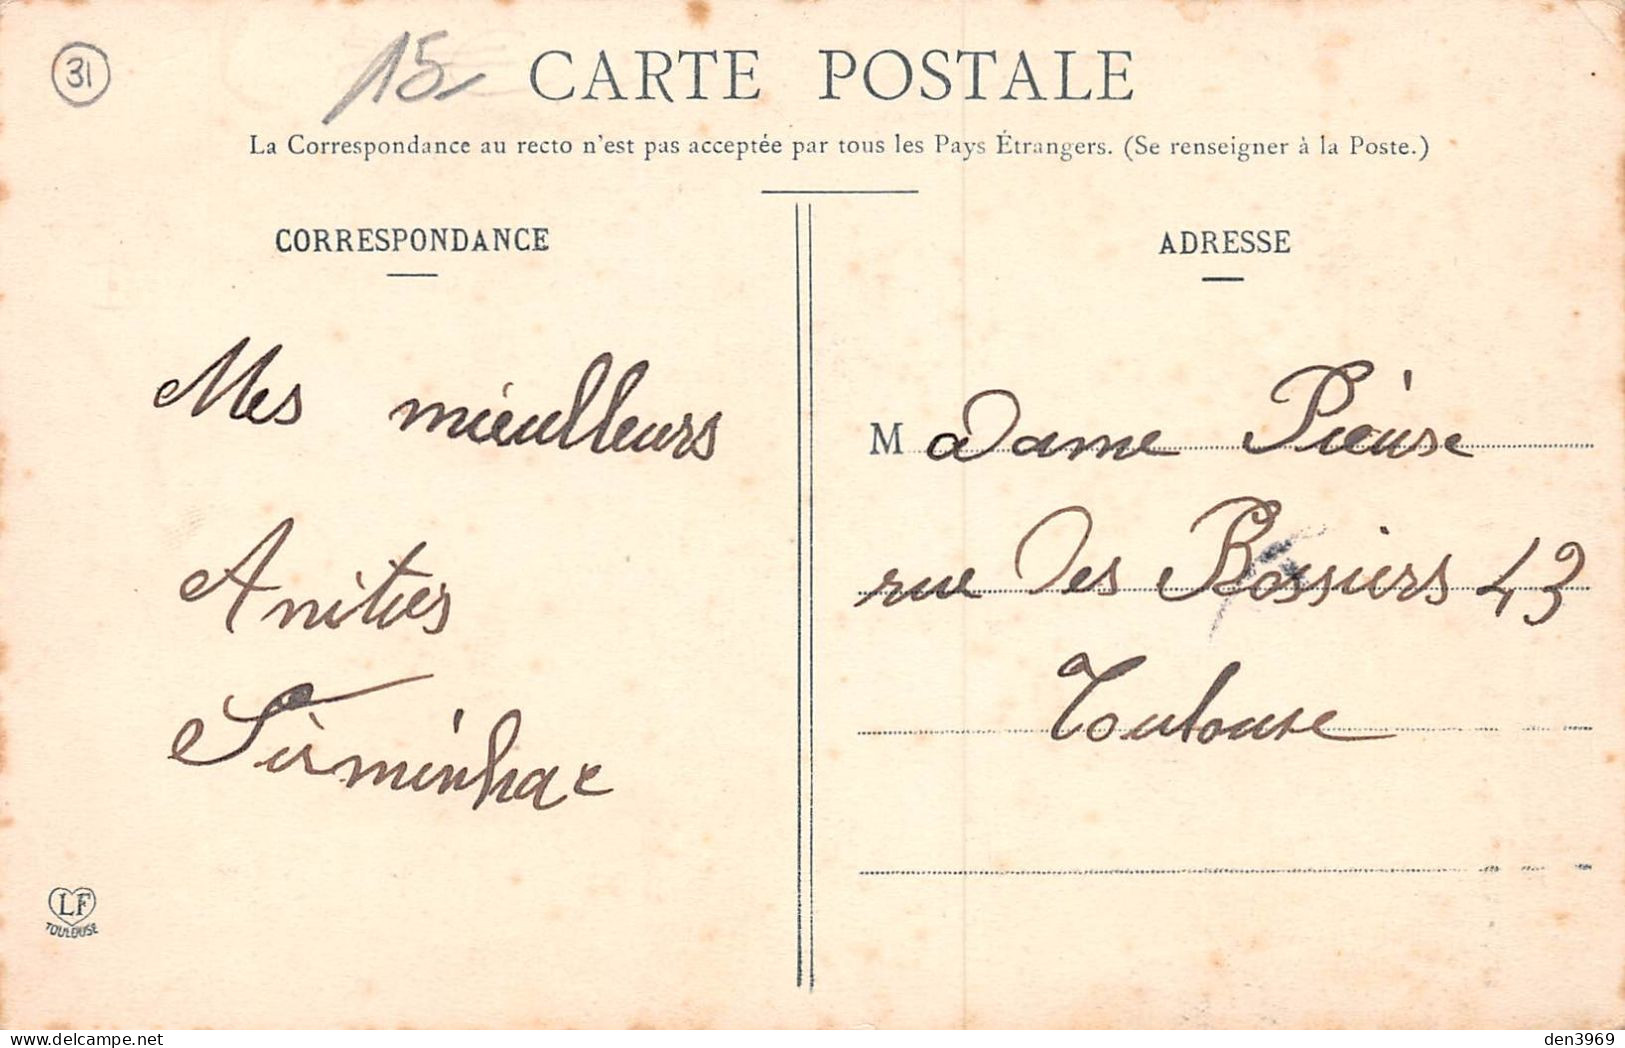 31
15
CARTE POSTALE
La Correspondance au recto n'est pas acceptée par tous les Pays Étrangers. (Se renseigner à la Poste.)
CORRESPONDANCE
Mes mieulleurs
Anities
Firminhac
LF
TOULOUSE
ADRESSE
Madame Pieuse
rue des Rossiers 43
Toulouse
den3969